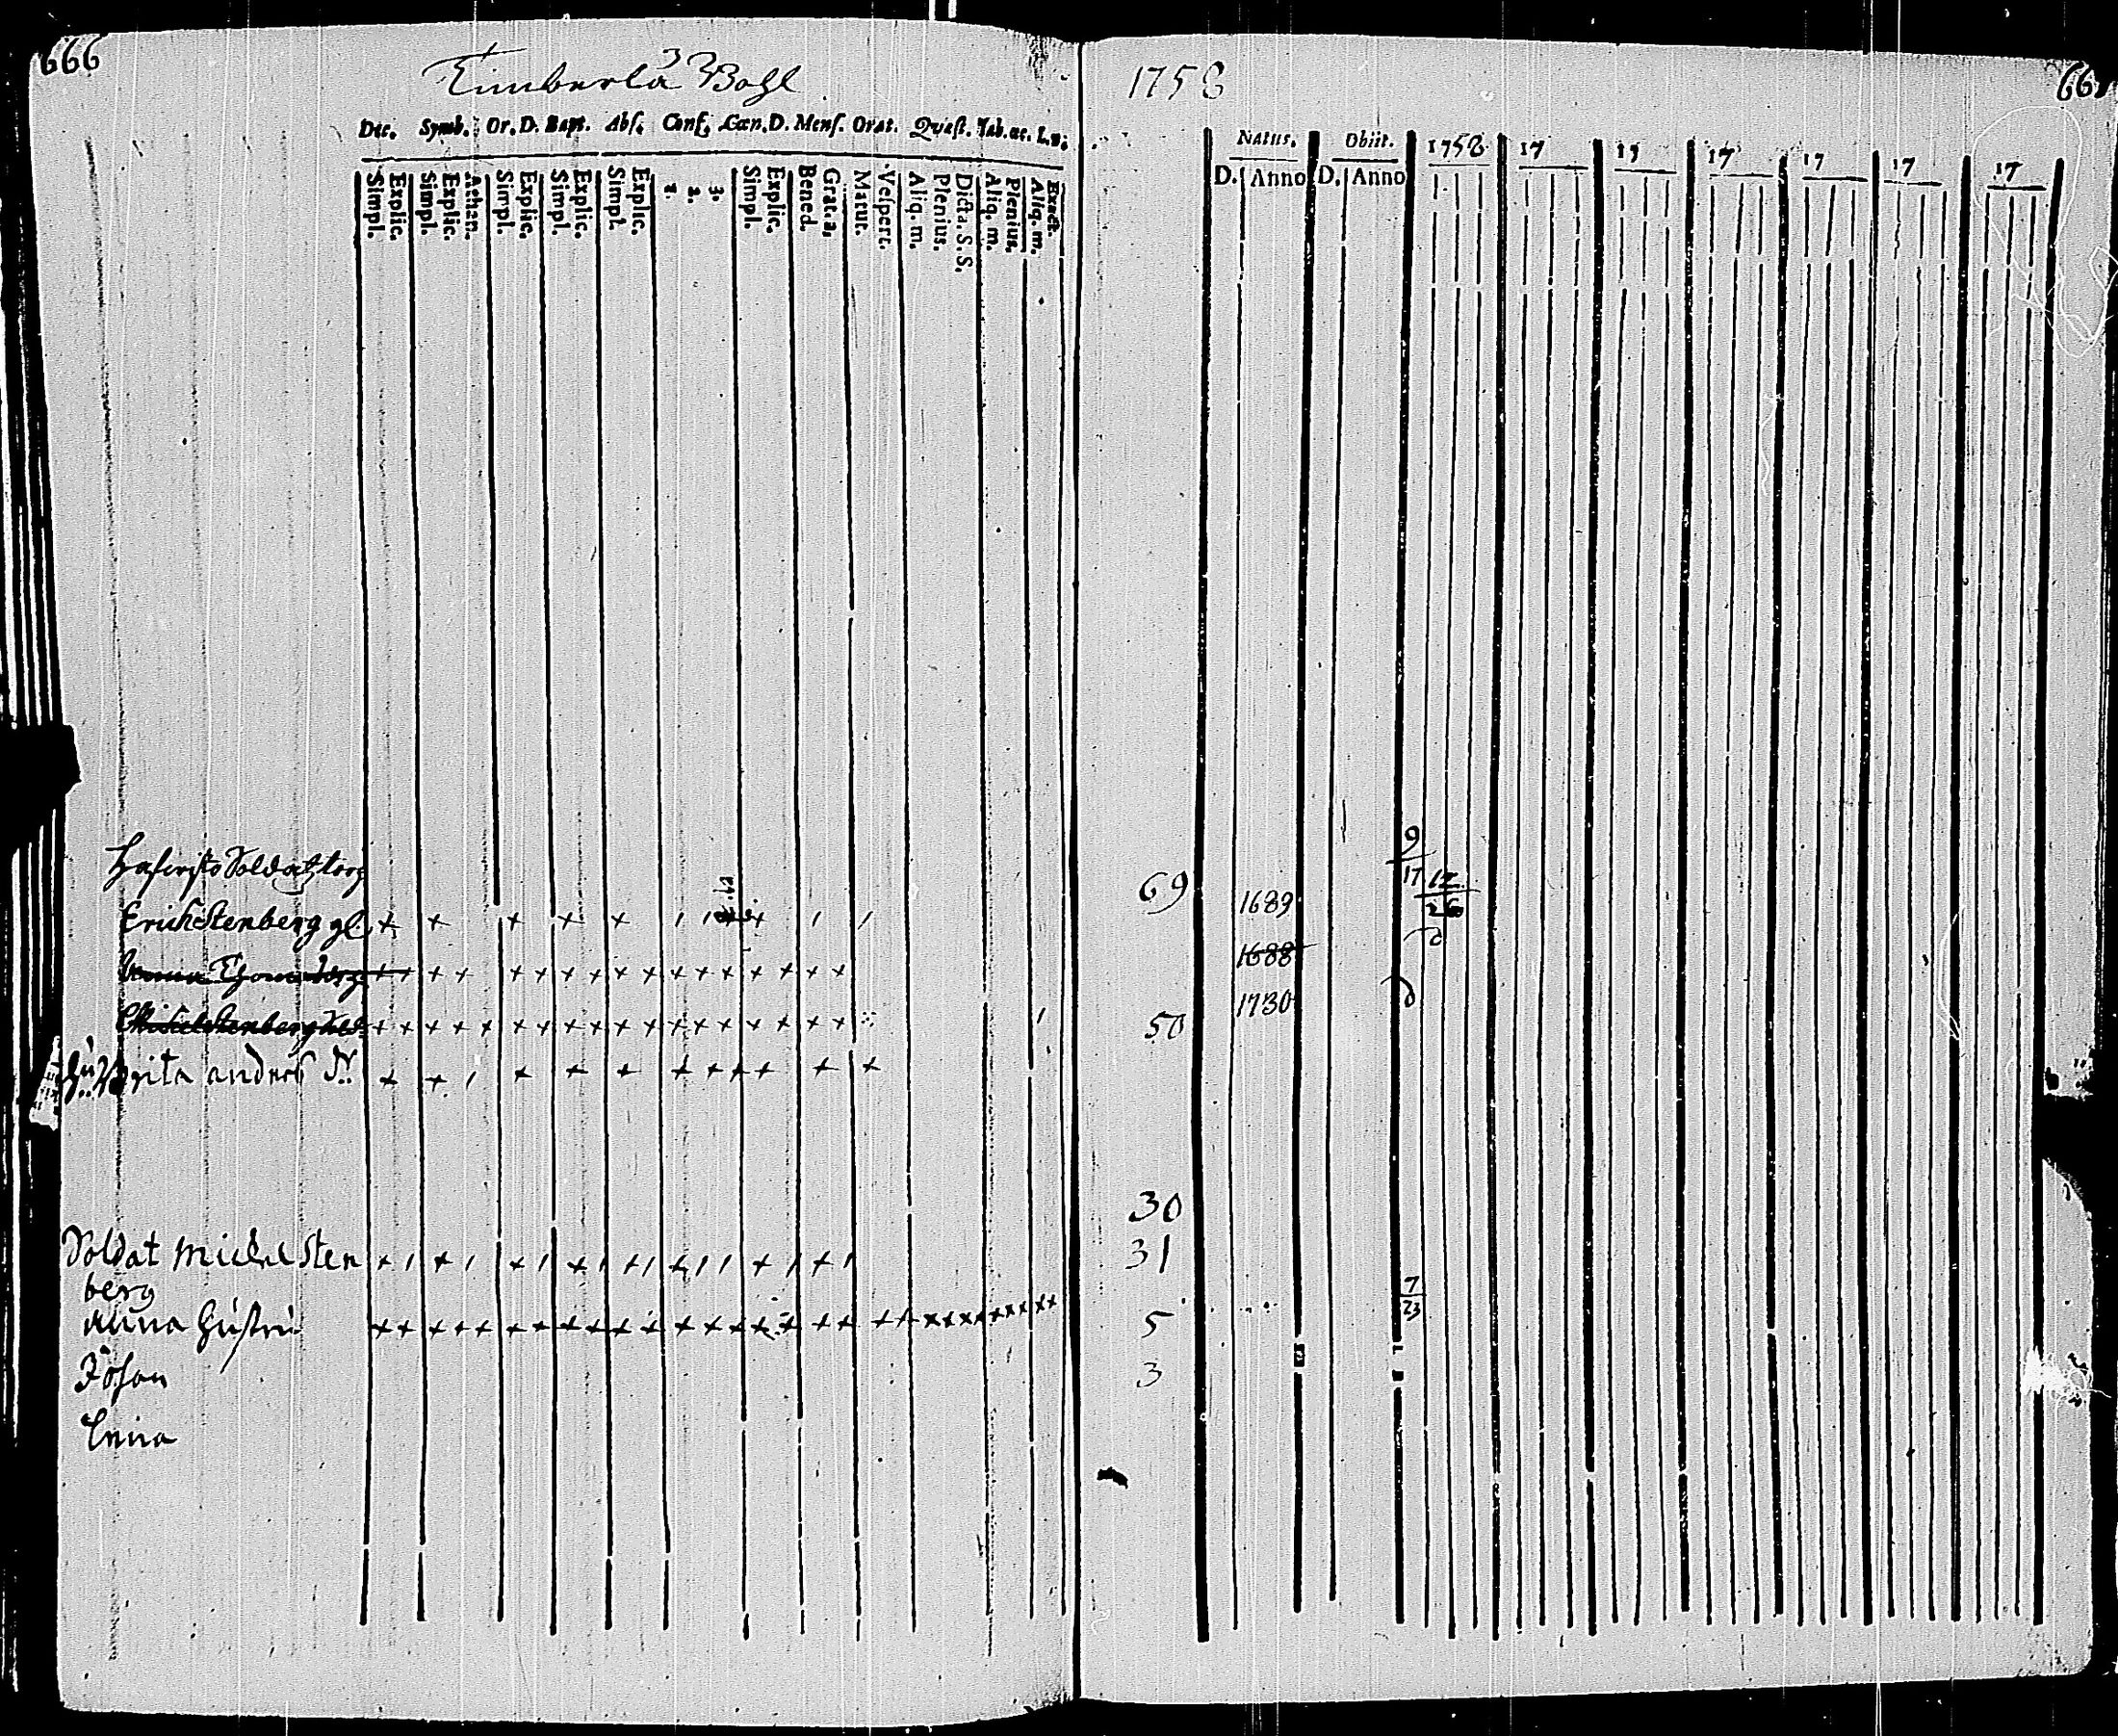 666
Timberla Bohl
Dec. Symb. Or. D. Bapt. Abs. Conf. Cœn. D. Mens. Orat. Quæst. Tab. œc. L. n.
Simpl. Explic. Simpl. Explic. Athan. Simpl. Explic. Simpl. Explic. Simpl. Explic. 1. 2. 3. Simpl. Explic. Bened. Grat. a. Matut. Vespert. Aliq. m. Plenius. Dicta. S. S. Aliq. m. Plenius. Aliq. m. Exact.
Soldattorp
Erich Stenberg gl. + + + + + 1 1 + 1 1
Anna + + + + + + + + + + + + + + + + +
Michel Stenberg + + + + + + + + + + + + + + + + + + 1
hu Brita anders Dr + + 1 + + + + + + + + +
Soldat Michel Sten
berg
Anna
Johan
1758
66
Natus. Obiit. 1758 17 17 17 17 17 17
D. Anno D. Anno
69 1689 9/17 12/26
1688
50 1730
30
31
5 7/23
3